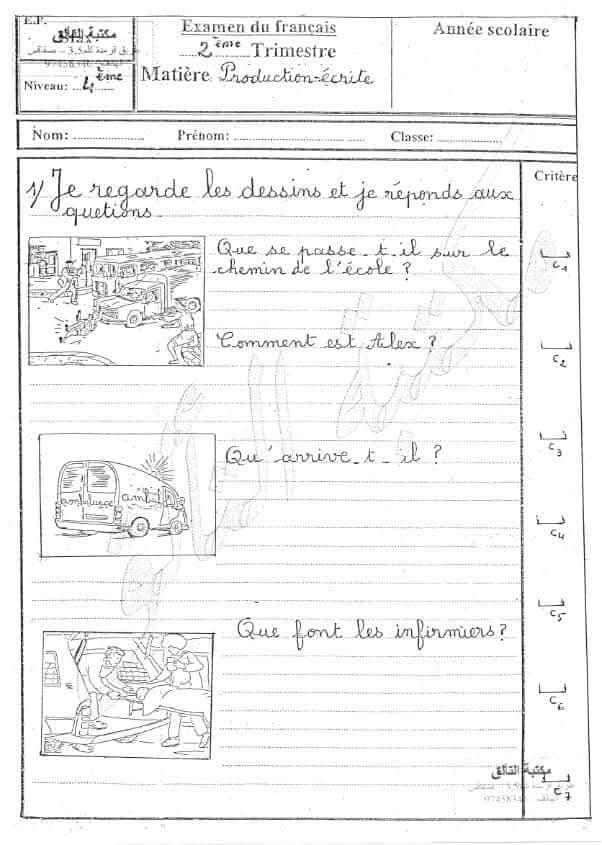 E.P.
مكتبة التألق
Niveau: 4ème
Examen du français
2ème Trimestre
Matière Production-écrite
Année scolaire
Nom: Prénom: Classe:
Critère
1/ Je regarde les dessins et je réponds aux
quetions
Que se passe_t_il sur le
chemin de l'école ?
C1
Comment est Alex ?
C2
Qu'arrive_t_il ?
C3
ambulance
amb
C4
C5
Que font les infirmiers?
C6
مكتبة التألق
C7